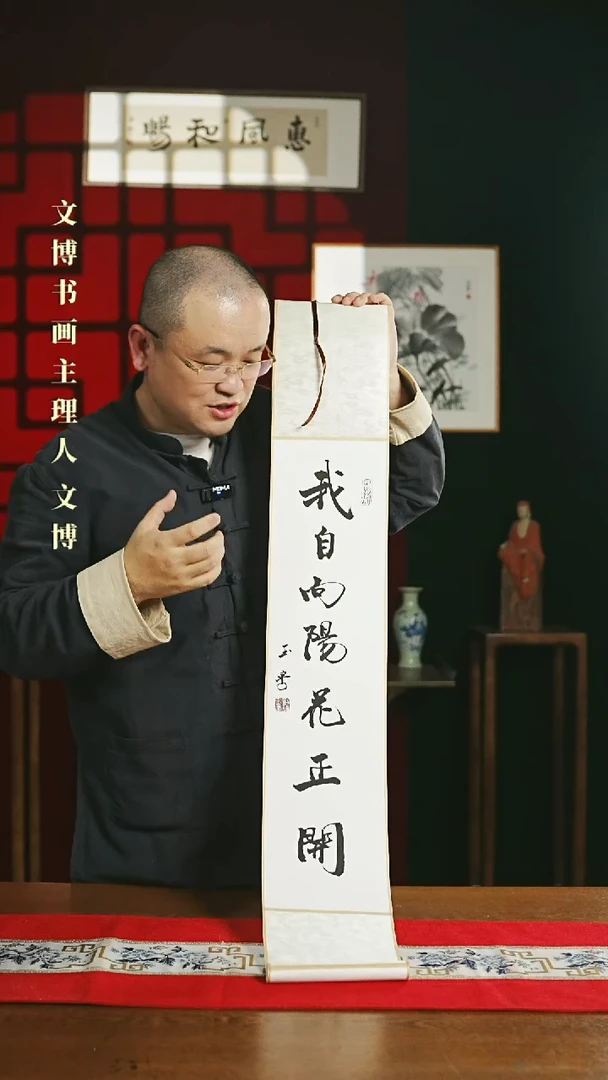 惠風和暢
文博书画主理人文博
我自向陽花正開